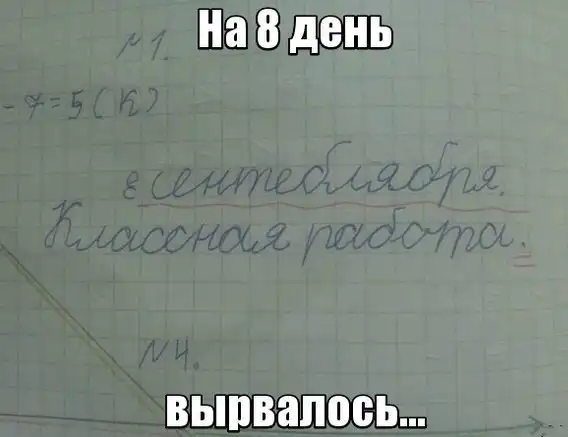 На 8 день
№1.
- 7 = 5 (К)
8 сентеблября.
Классная работа.
№4.
вырвалось...